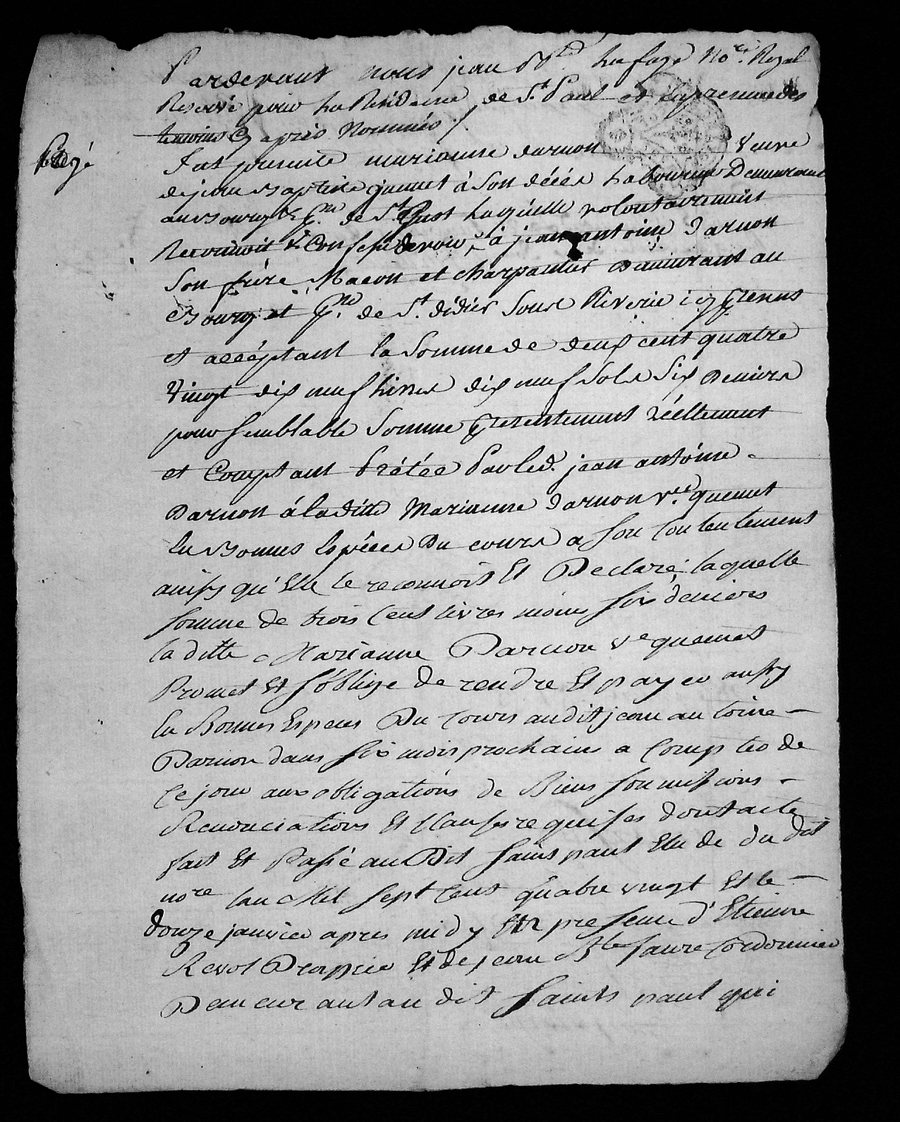 Pardevant nous jean Bte Lafage Nore Royal
Reservé pour La Residence de St Paul et en presence des
temoins Cy après Nommés /
fut presente marianne darnon Veuve
de jean Baptiste quemet à son décés Laboureur Demeurant
au Bourg & psse de St Laquelle volontairement
Reconnoit & Confesse devoir à jean antoine Darnon
Son frère Macon et charpantier Demeurant au
Bourg et psse de St didier Sous Riverie icy present
et acceptant la Somme de deux cent quatre
Vingt dix neuf Livres dix neuf Sols Six Deniers
pour semblable Somme presentement réellement
et Comptant Prétée Par led. jean antoine
Darnon à la ditte Marianne darnon vve quemet
En Bonnes Espèces Du cours a son Contentement
ainsy qu'Elle le reconnoit Et Declare laquelle
somme de trois Cent livres moins six deniers
la ditte Marianne Darnon ve quemet
Promet Et s'oblige de rendre Et payer aussy
En Bonnes Especes Du Cours audit jean antoine
Darnon dans six mois prochains a Compter de
Ce jour aux obligations de Biens soumissions
Renonciations Et Clauses requises dont acte
fait Et Passé au Dit saint paul Etude du dit
nore lan Mil sept Cent quatre vingt Et le
douze janvier apres midy En presence d'Etienne
Revol Et de jean Bte faure Cordonnier
Demeurant au dit saint paul qui